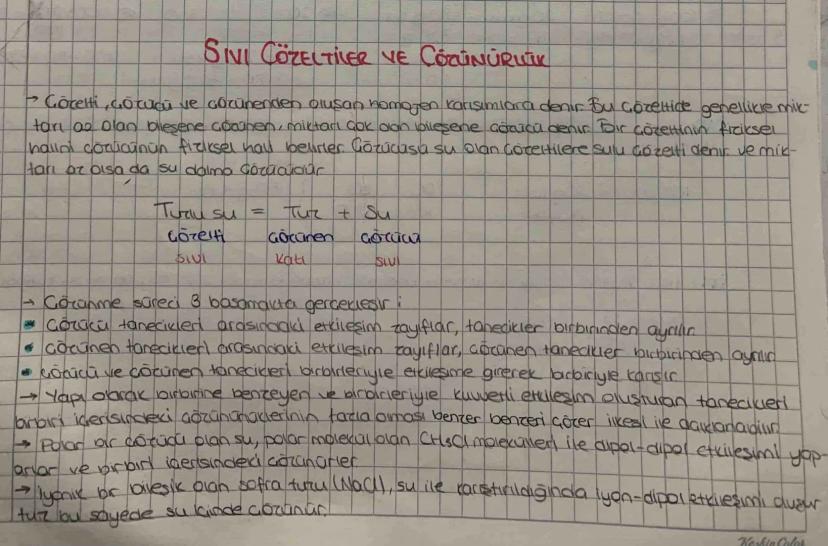 SIVI ÇÖZELTİLER VE ÇÖZÜNÜRLÜK
→ Çözelti, çözücü ve çözünenden oluşan homojen karışımlara denir. Bu çözeltide genellikle mik-
tarı az olan bileşene çözünen, miktarı çok olan bileşene çözücü denir. Bir çözeltinin fiziksel
halini çözücünün fiziksel hali belirler. Çözücüsü su olan çözeltilere sulu çözelti denir ve mik-
tarı az olsa da su daima çözücüdür
Tuzlu su = Tuz + Su
çözelti çözünen çözücü
sıvı katı sıvı
→ Çözünme süreci 3 basamakta gerçekleşir:
• Çözücü tanecikleri arasındaki etkileşim zayıflar, tanecikler birbirinden ayrılır
• Çözünen tanecikleri arasındaki etkileşim zayıflar, çözünen tanecikler birbirinden ayrılır
• Çözücü ve çözünen tanecikleri birbirleriyle etkileşime girerek birbiriyle karışır
→ Yapı olarak birbirine benzeyen ve birbirleriyle kuvvetli etkileşim oluşturan tanecikleri
birbiri içerisindeki çözünürlüklerinin fazla olması benzer benzeri çözer ilkesi ile
→ Polar bir çözücü olan su, polar molekül olan CH₃Cl molekülleri ile dipol-dipol etkileşimi yap-
arlar ve birbiri içerisindeki çözünürler
→ İyonik bir bileşik olan sofra tuzu (NaCl), su ile karıştırıldığında iyon-dipol etkileşimi oluşur
tuz bu sayede su içinde çözünür.